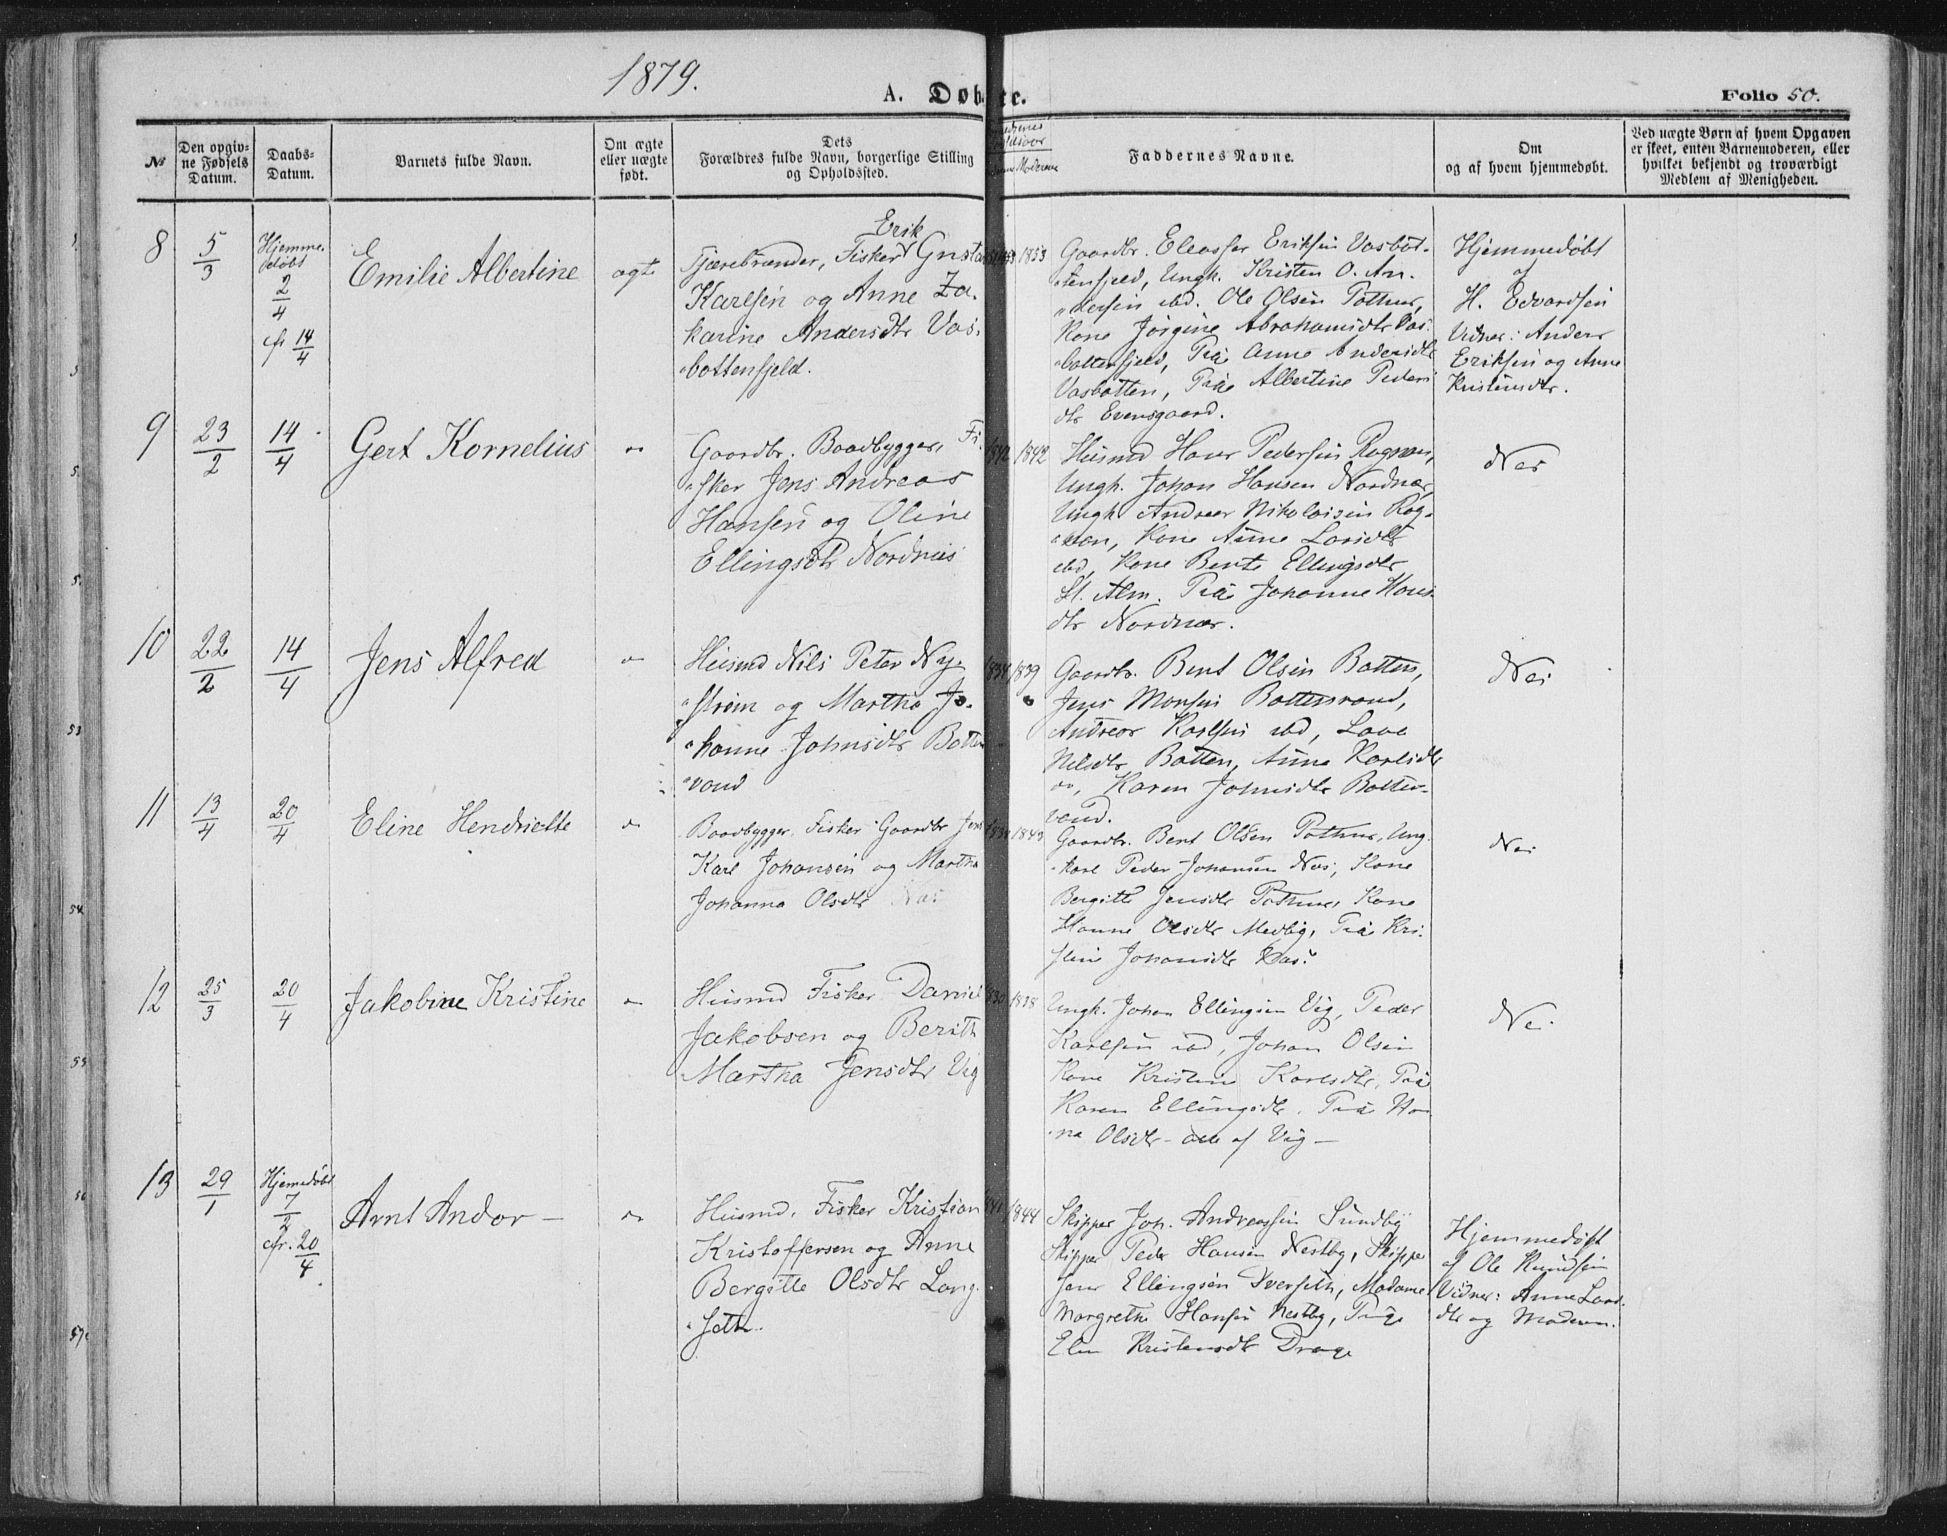 1879.
A. Døbte.
Folio 50.
No
Den opgiv-
ne Fødsels
Datum.
Daabs-
Datum.
Barnets fulde Navn.
Om ægte
eller uægte
født.
Dets
Forældres fulde Navn, borgerlige Stilling
og Opholdssted.
Faddernes Navne.
Om
og af hvem hjemmedøbt.
Ved uægte Børn af hvem Opgaven
er skeet, enten Barnemoderen, eller
hvilket bekjendt og troværdigt
Medlem af Menigheden.
8
5/3
Hjemme-
døbt
2/4
cfr 14/4
Emilie Albertine
ægte
Erik
Tjærebrænder, Fisker Gustav
Karlsen og Anne Za-
karine Andersdtr Vas-
bottenfjeld.
1853
Gaardbr. Eleasser Eriksen Vasbot-
tenfjeld, Ungk. Kristen O. An-
dersen ibd. Ole Olsen Pothus,
Kone Jørgine Abrahamsdtr Vas-
bottenfjeld, Pige Anne Andersdtr
Vasbotten, Pige Albertine Peders
dtr Evensgaard.
Hjemmedøbt
af
H. Edvardsen
Vidner: Anders
Eriksen og Anne
Kristensdtr.
9
23/2
14/4
Gert Kornelius
"
Gaardbr. Baadbygger, Fi-
sker Jens Andreas
Hansen og Oline
Ellingsdtr Nordnæs
1842 1842
Husmd Hans Pedersen Rognan,
Ungk. Johan Hansen Nordnæs,
Ungk. Andreas Nikolaisen Rog-
nan, Kone Anne Larsdtr
ibd, Kone Bente Ellingsdtr
St. Alm. Pige Johanne Hans-
dtr Nordnæs.
Nei
10
22/2
14/4
Jens Alfred
"
Husmd Nils Peter Ny-
strøm og Martha Jo-
hanne Johnsdtr Botten
vand
1834 1839
Gaardbr. Bent Olsen Botten,
Jens Monsen Bottenvand,
Andreas Karlsen ibd, Lava
Nilsdtr Botten, Anne Karlsdtr
", Karen Johnsdtr Botten-
vand.
Nei
11
13/4
20/4
Eline Hendriette
"
Baadbygger, Fisker Gaardbr Jens
Karl Johansen og Martha
Johanna Olsdtr Næs
1843
Gaardbr. Bent Olsen Pothus, Ung-
karl Peder Johansen Næs, Kone
Bergitte Jensdtr Pothus, Kone
Hanne Olsdtr Medby, Pige Kri-
stine Johansdtr Næs.
Nei
12
25/3
20/4
Jakobine Kristine
"
Husmd Fisker Daniel
Jakobsen og Berith
Martha Jensdtr Vig
1830 1838
Ungk. Johan Ellingsen Vig, Peder
Karlsen ibd, Johan Olsen
Kone Kristine Karlsdtr, Pige
Karen Ellingsdtr. Pige Han-
na Olsdtr - alle af Vig -
Nei.
13
29/1
Hjemmedøbt
7/2
cfr. 20/4
Arnt Andor -
"
Husmd. Fisker Kristian
Kristoffersen og Anne
Bergitte Olsdtr Lang-
seth.
1841 1844
Skipper Joh. Andreassen Sundby
Skipper Peder Hansen Nestby, Skipper
Jens Ellingsen Tverseth, Madame
Margrethe Hansen Nestby, Pige
Elen Kristensdtr Drage
Hjemmedøbt
af Ole Knudsen
Vidner: Anne Lars-
dtr og Moderen.